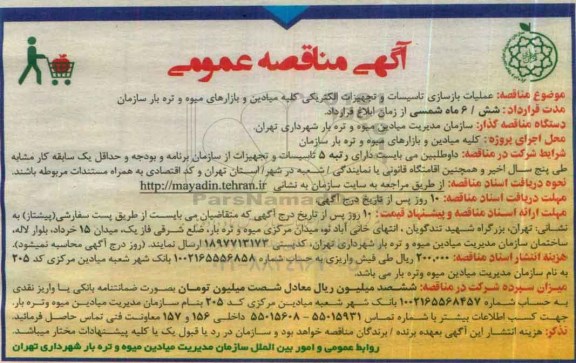 آگهی مناقصه عمومی
موضوع مناقصه: عملیات بازسازی تاسیسات و تجهیزات الکتریکی کلیه میادین و بازارهای میوه و تره بار سازمان
مدت قرارداد: شش / ۶ ماه شمسی از زمان ابلاغ قرارداد.
دستگاه مناقصه گذار: سازمان مدیریت میادین میوه و تره بار شهرداری تهران.
محل اجرای پروژه : کلیه میادین و بازارهای میوه و تره بار سازمان
شرایط شرکت در مناقصه: داوطلبین می بایست دارای رتبه ۵ تاسیسات و تجهیزات از سازمان برنامه و بودجه و حداقل یک سابقه کار مشابه
طی پنج سال اخیر و همچنین اقامتگاه قانونی یا نمایندگی / شعبه در شهر/ استان تهران و کد اقتصادی به همراه مستندات مربوطه باشد.
نحوه دریافت اسناد مناقصه: از طریق مراجعه به سایت سازمان به نشانی http://mayadin.tehran.ir
مهلت دریافت اسناد مناقصه: ۱۰ روز پس از تاریخ درج آگهی
مهلت ارائه اسناد مناقصه و پیشنهاد قیمت: ۱۰ روز پس از تاریخ درج آگهی که متقاضیان می بایست از طریق پست سفارشی(پیشتاز) به
نشانی: تهران، بزرگراه شهید تندگویان ، انتهای خانی آباد نو، میدان مرکزی میوه و تره بار، ضلع شرقی فاز یک، میدان ۱۵ خرداد، بلوار لاله،
ساختمان سازمان مدیریت میادین میوه و تره بار شهرداری تهران، کدپستی ۱۸۹۷۷۱۳۱۷۳ ارسال نمایند. (روز درج آگهی محاسبه نمیشود).
هزینه انتشار اسناد مناقصه: ۲۰۰,۰۰۰ ریال طی فیش واریزی به حساب شماره ۱۰۰۲۱۶۵۵۵۶۸۵۸ بانک شهر شعبه میادین مرکزی کد ۲۰۵
به نام سازمان مدیریت میادین میوه وتره بار می باشد.
میزان سپرده شرکت در مناقصه: ششصد میلیون ریال معادل شصت میلیون تومان بصورت ضمانتنامه بانکی یا واریز نقدی
به حساب شماره ۱۰۰۲۱۶۵۵۶۸۴۵۷ بانک شهر شعبه میادین مرکزی کد ۲۰۵ بنام سازمان مدیریت میادین میوه وتره بار.
جهت کسب اطلاعات بیشتر با شماره تماس ۵۵۰۱۵۹۳۱ - ۵۵۰۱۵۶۰۸ داخلی ۱۵۶ و ۱۵۷ معاونت فنی تماس حاصل فرمائید.
تذکر: هزینه انتشار این آگهی بعهده برنده / برندگان مناقصه خواهد بود و سازمان در رد یا قبول یک یا کلیه پیشنهادات مختار میباشد.
روابط عمومی و امور بین الملل سازمان مدیریت میادین میوه و تره بار شهرداری تهران